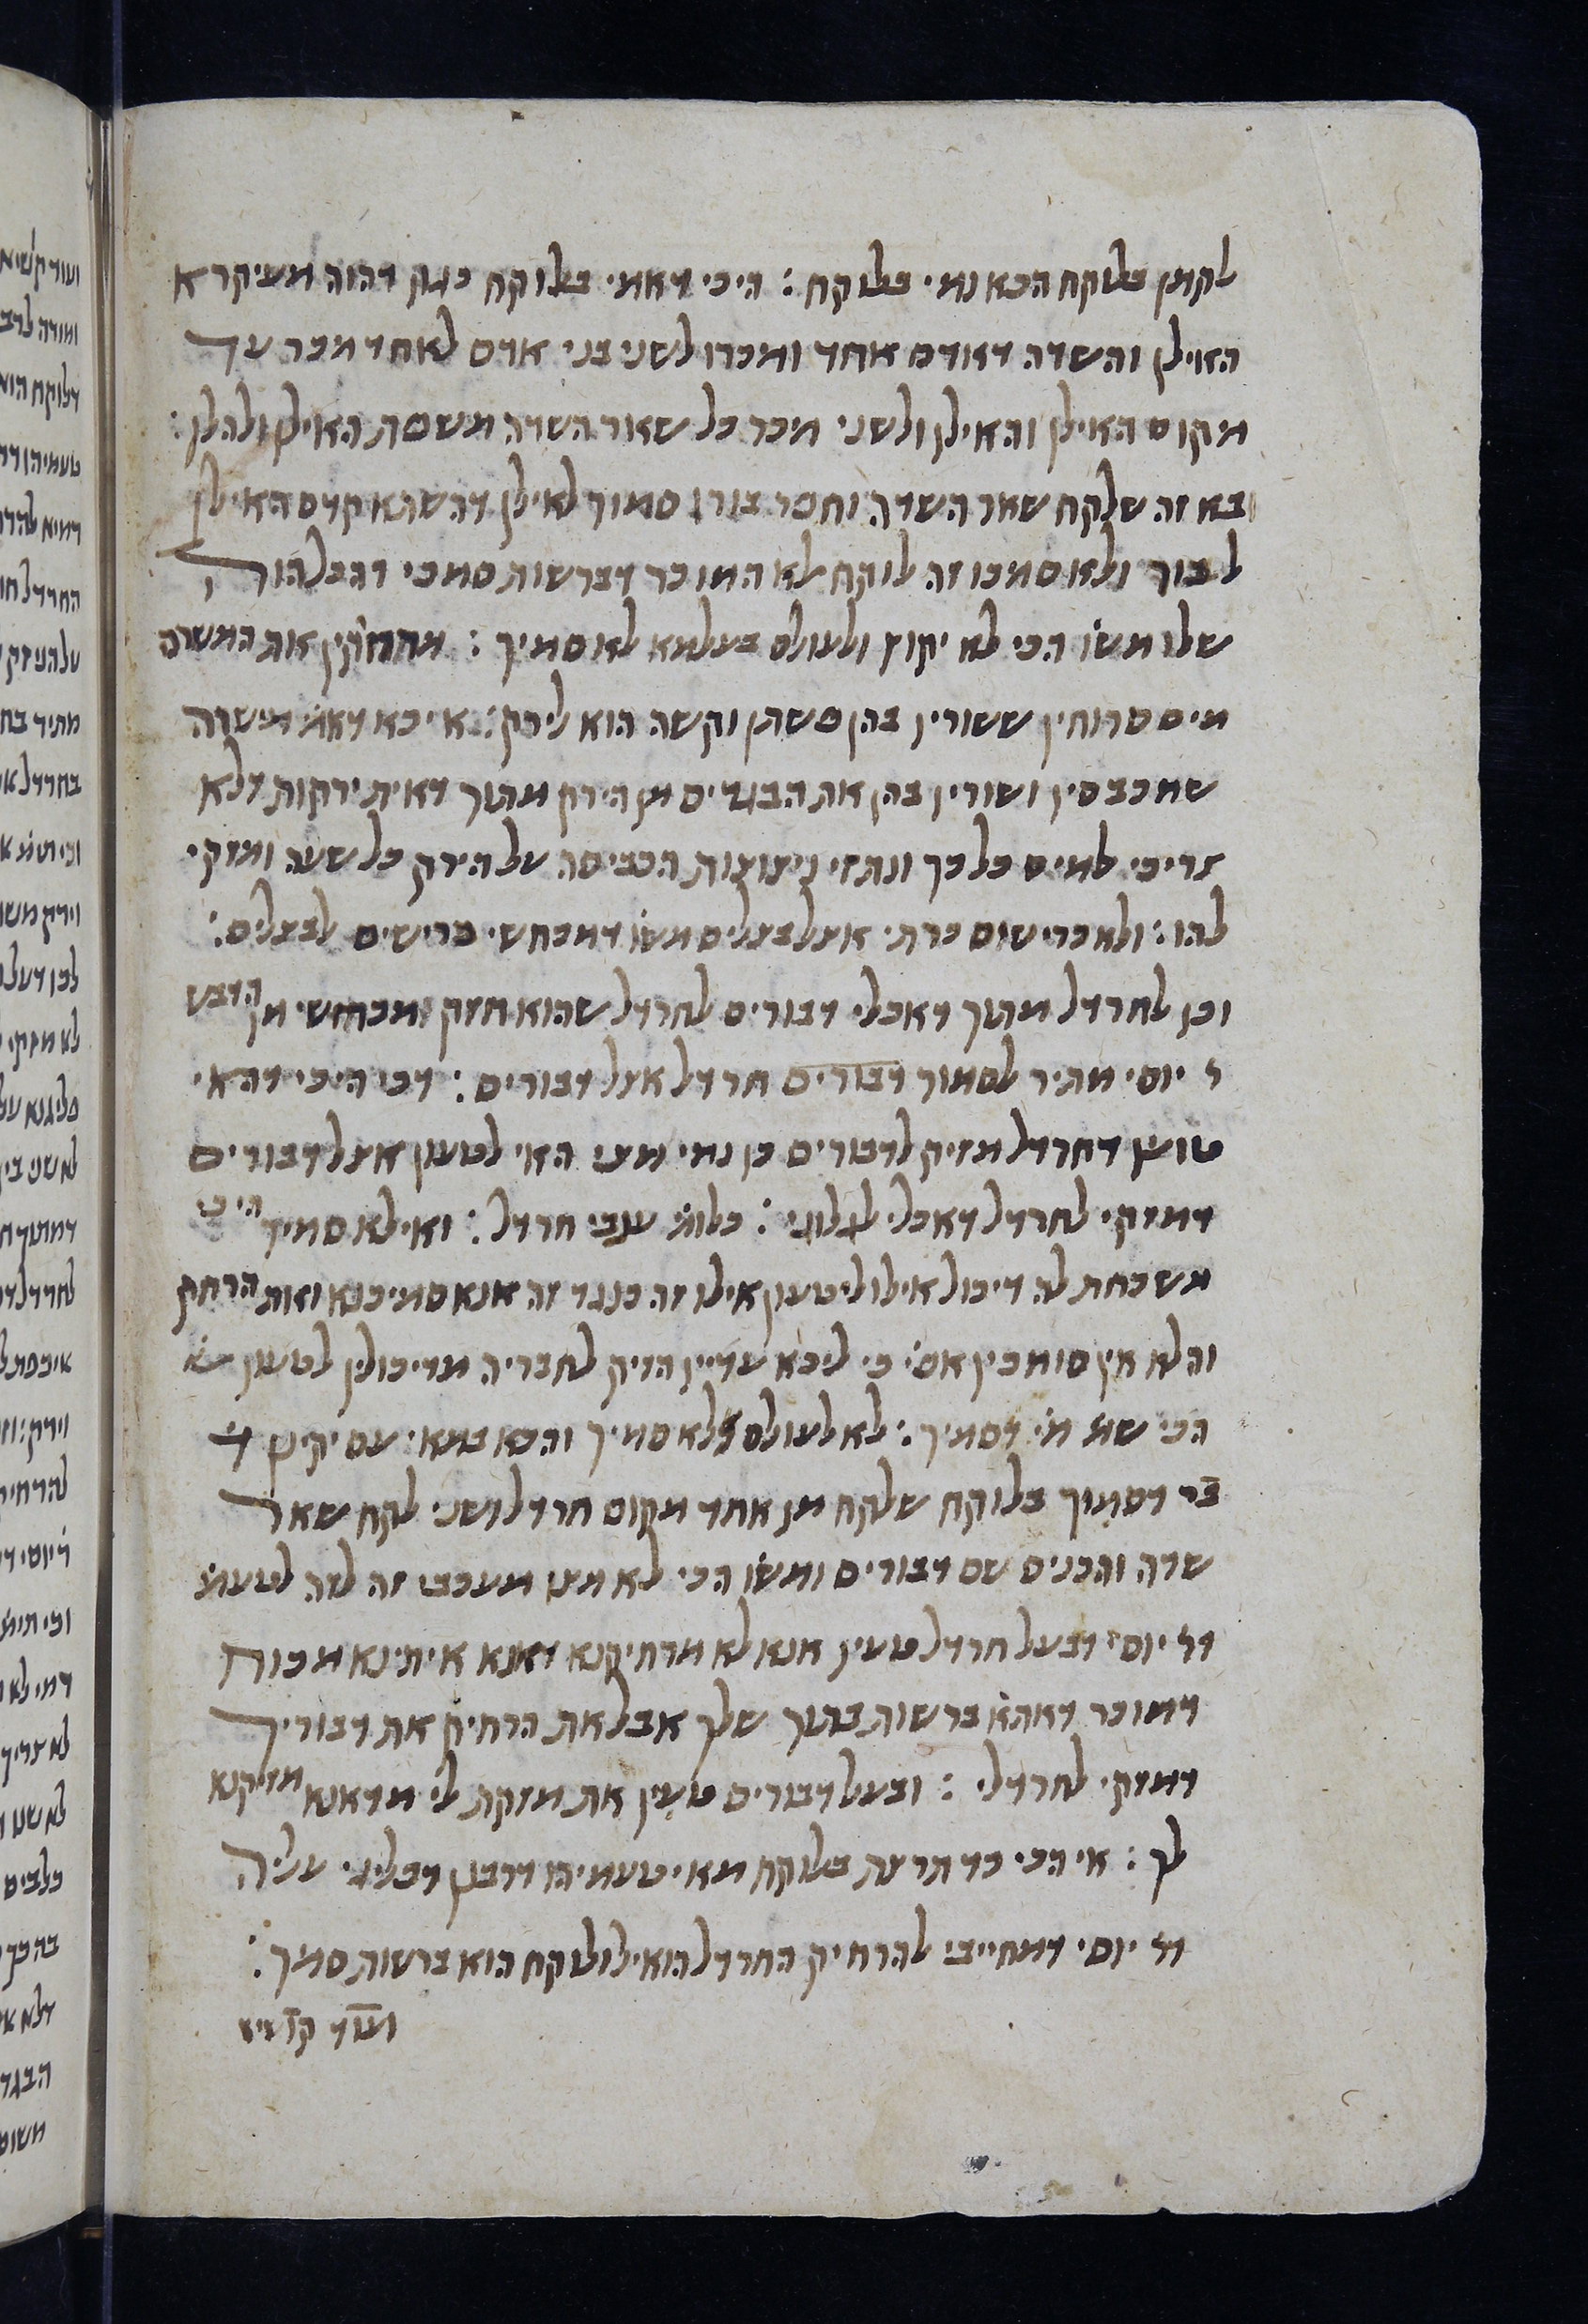 לקמן בלוקח הכא נמי בלוקח: היכי דאמי בלוקח כגון דהוה מעיקרא
האילן והשדה דאדם אחד ומכרו לשני בני אדם לאחד מכר עד
מקום האילן והאילן ולשני מכר כל שאר השדה משפת האילן ולהלן:
ובא זה שלקח שאר השדה וחפר בורו סמוך לאילן דהשתא קדם האילן
לבור ולא סמכו זה לוקח אלא המוכר דברשות סמכי דהכל הוה
שלו משו הכי לא יקוץ ולעולם בעלמא לא סמיך: מרחיקין את המשרה
מים סרוחין ששורין בהן פשתן וקשה הוא לירק: איכא דאמ משרה
שמכבסין ושורין בהן את הבגדים מן הירק מתוך דאית ירקות דלא
צריכי למים כל כך ונתזי ניצוצות הכביסה על הירק כל שעה ומזקי
להו: ולא כרישים כרתי אצל בצלים משו דמכחשי כרישים לבצלים:
וכן לחרדל מתוך דאכלי דבורים לחרדל שהוא חזק ומכחשי מן הדבש
ר יוסי מתיר לסמוך דבורים חרדל אצל דבורים: דכי היכי דהאי
טוען דחרדל מזיק לדבורים כן נמי מצי האי לטעון אצל דבורים
דמזקי לחרדל דאכלי לגלוגי: כלומ ענבי חרדל: ואי לא סמיך היכי
משכחת לה דיכול אילו ליטעון אילו זה כנגד זה אנא סמיכנא ואת הרחק
והלא אין סומכין אפי כי ליכא עדיין הזיק לחבריה מדיכולין לטעון
הכי שמ מי דסמיך: לא לעולם דלא סמיך והכא במאי עסיקינן ד
בר דסמוך בלוקח שלקח מן אחד מקום חרדל ושני לקח שאר
שדה והכניס שם דבורים ומשו הכי לא מצו מעכבי זה לזה לטעמ
דר יוסי דבעל חרדל טעין אנא לא מרחיקנא דאנא איתינא מכוח
דמוכר דאתא ברשות בתוך שלך אבל את הרחיק את דבוריך
דמזקי לחרדלי: ובעל דבורים טעין את מזקת לי מדאנא מזיקנא
לך: אי הכי כד תרצת בלוקח מאי טעמיהו דרבנן דפליגי עליה
דר יוסי דמחייבי להרחיק החרדל הואיל ולוקח הוא ברשות סמיך:
ועוד קשיא